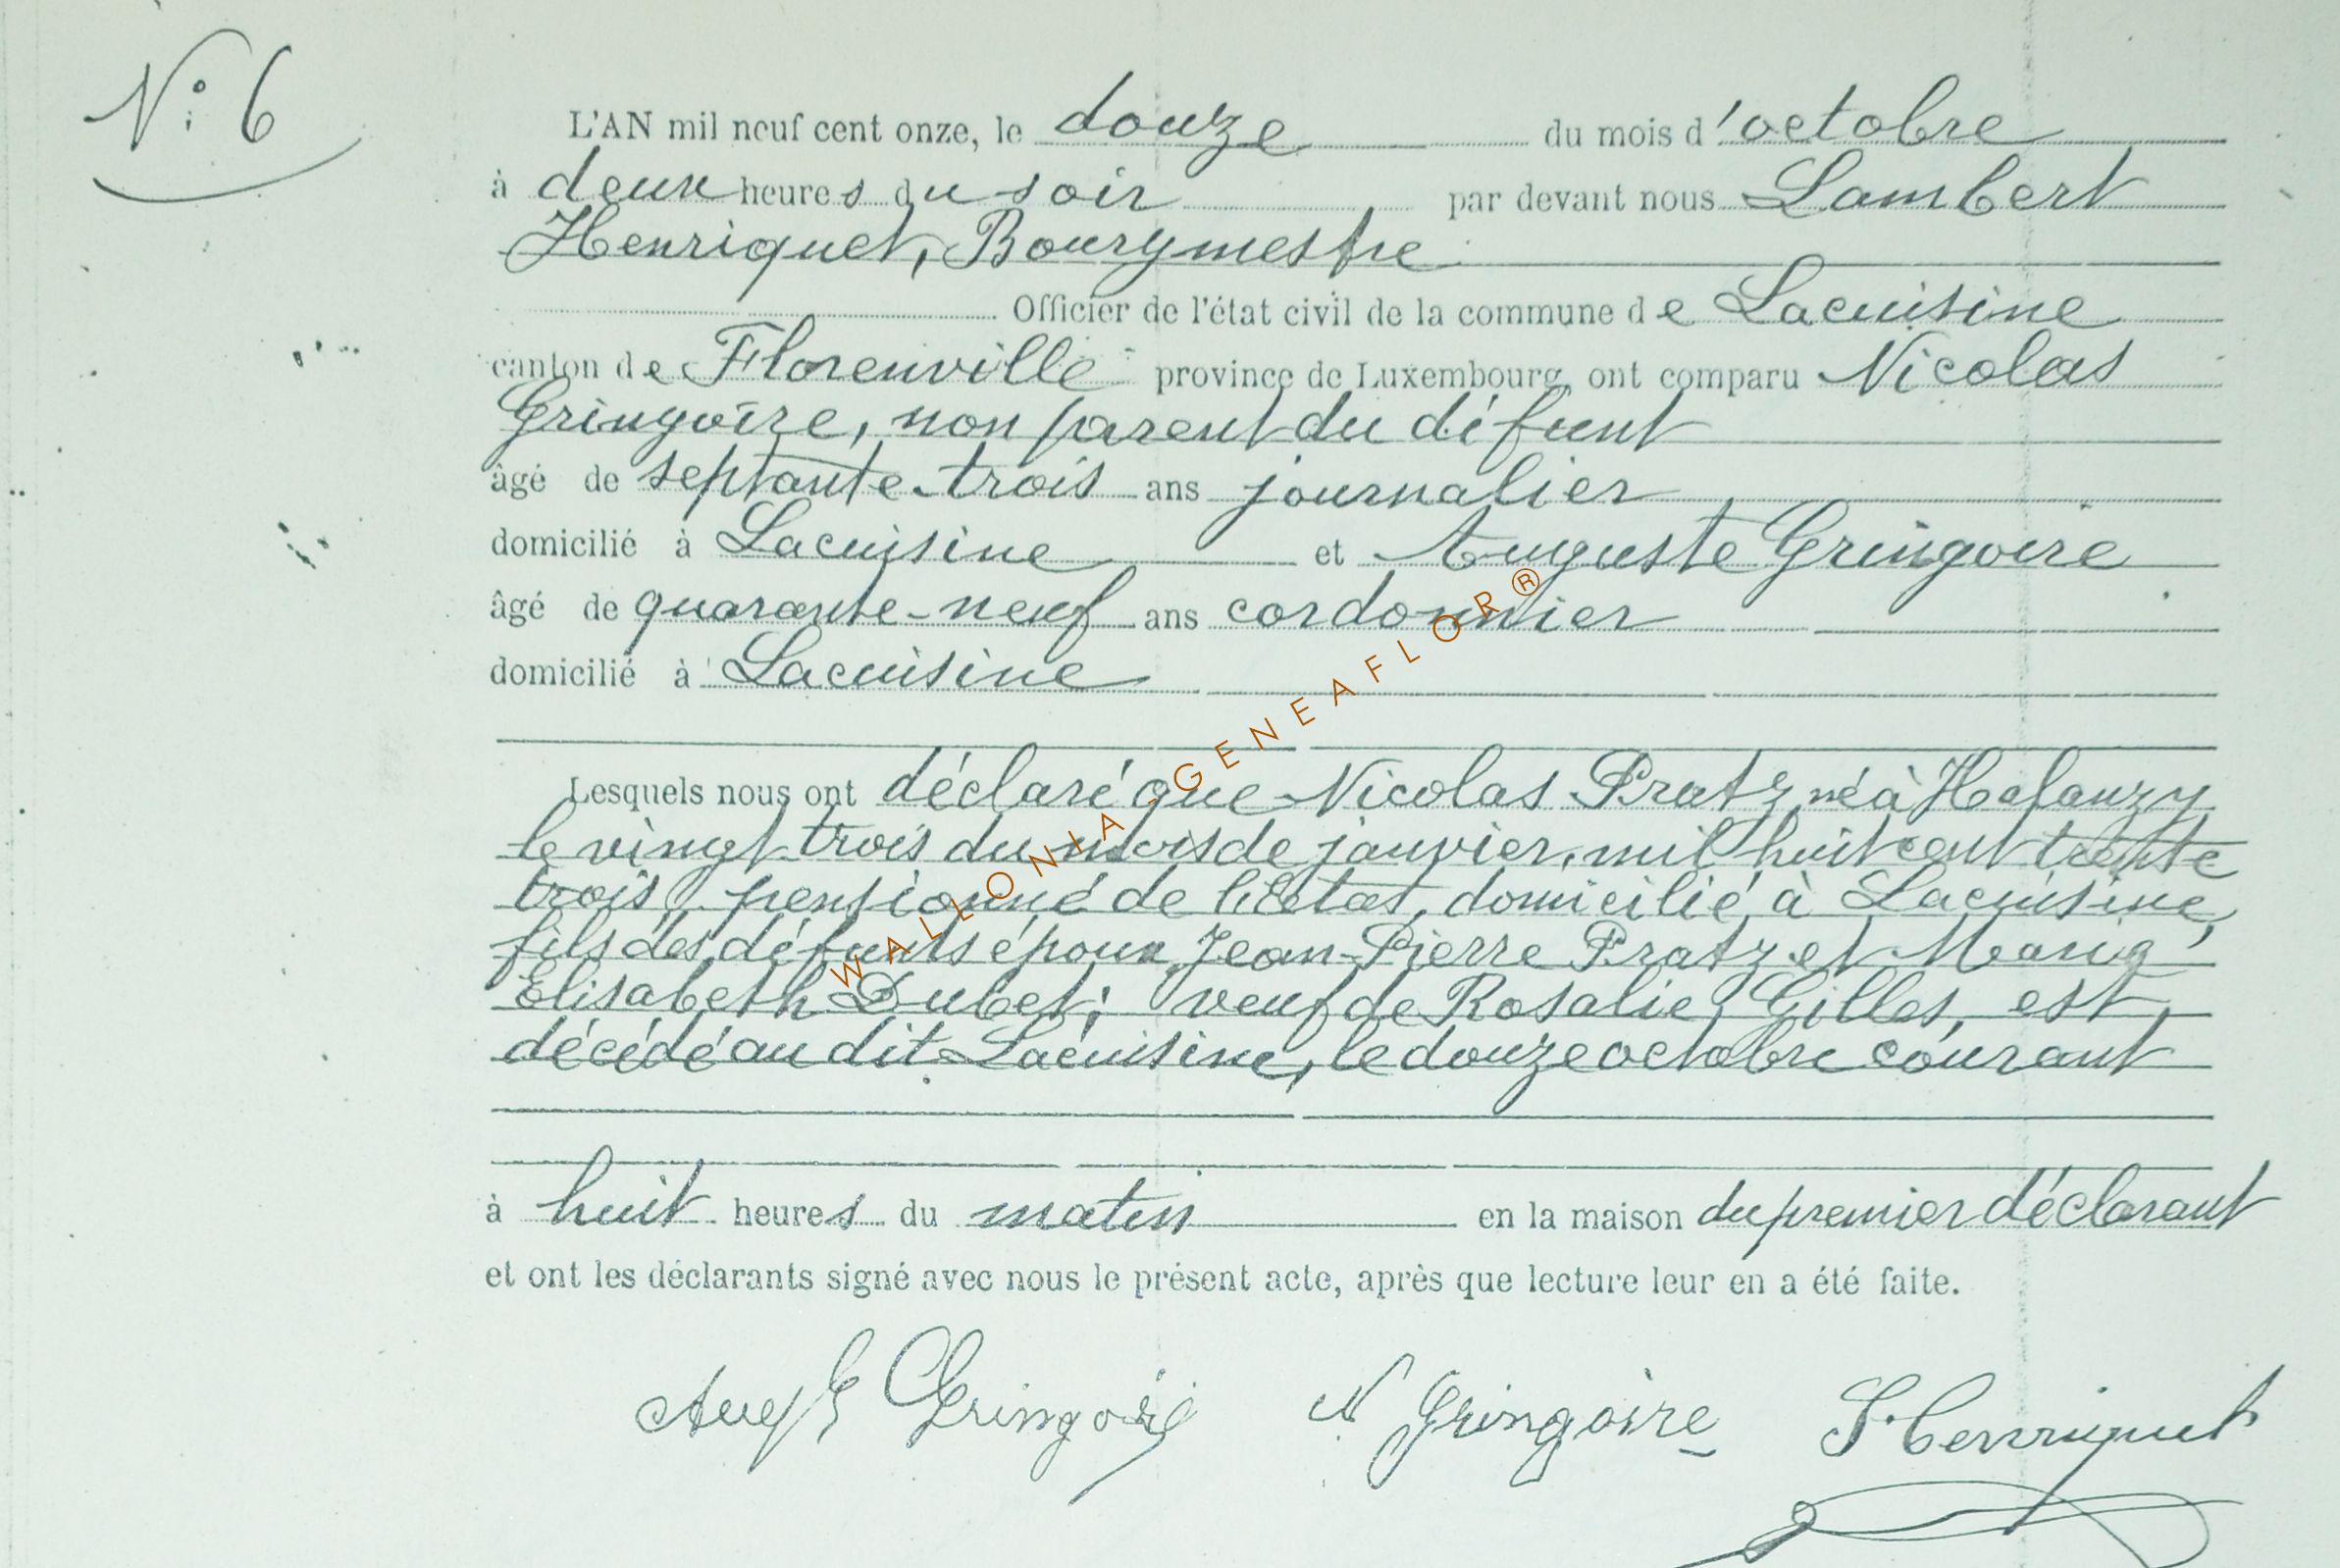 N° 6
L'AN mil neuf cent onze, le douze du mois d'octobre
à deux heures du soir par devant nous Lambert
Henriquet, Bourgmestre
Officier de l'état civil de la commune de Lacuisine
canton de Florenville province de Luxembourg, ont comparu Nicolas
Gringoire, non parent du défunt
âgé de septante-trois ans journalier
domicilié à Lacuisine et Auguste Gringoire
âgé de quarante-neuf ans cordonnier
domicilié à Lacuisine
Lesquels nous ont déclaré que Nicolas Pratz, né à Halanzy
le vingt trois du mois de janvier, mil huit cent trente
trois, pensionné de l'Etat, domicilié à Lacuisine,
fils des défunts époux Jean-Pierre Pratz et Maria
Elisabeth Dubet; veuf de Rosalie Gilles, est
décédé au dit Lacuisine, le douze octobre courant
à huit heures du matin en la maison du premier déclarant
et ont les déclarants signé avec nous le présent acte, après que lecture leur en a été faite.
Augte Gringoire N Gringoire L. Henriquet
WALLONIA GENEAFLOR®